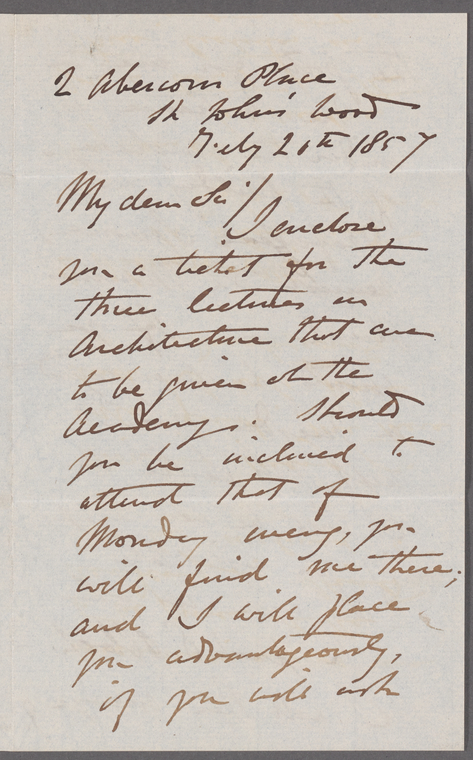 2 Abercorn Place
St John's Wood
Feby 20th 1857
My dear Sir/
I enclose
you a ticket for the
three lectures on
Architecture that are
to be given at the
Academy. Should
you be inclined to
attend that of
Monday eveng, you
will find me there;
and I will place
you advantageously,
if you will ask